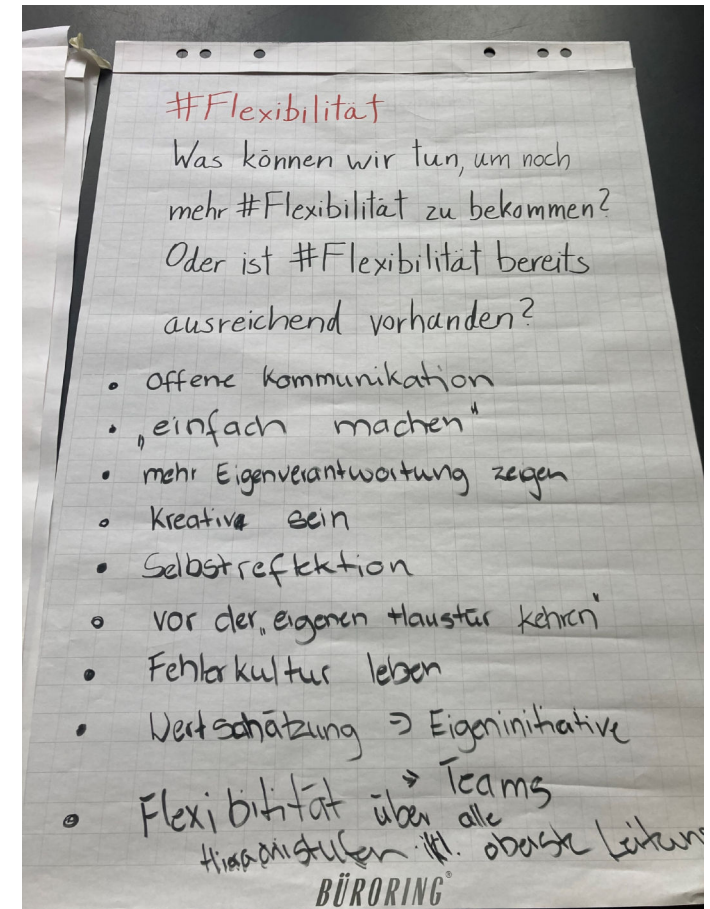 #Flexibilität
Was können wir tun, um noch
mehr #Flexibilität zu bekommen?
Oder ist #Flexibilität bereits
ausreichend vorhanden?
• offene Kommunikation
• „einfach machen"
• mehr Eigenverantwortung zeigen
• Kreativ sein
• Selbstreflektion
• vor der „eigenen Haustür kehren"
• Fehlerkultur leben
• Wertschätzung ⇒ Eigeninitiative
→ Teams
• Flexibilität über alle
inkl. oberste Leitung
BÜRORING®